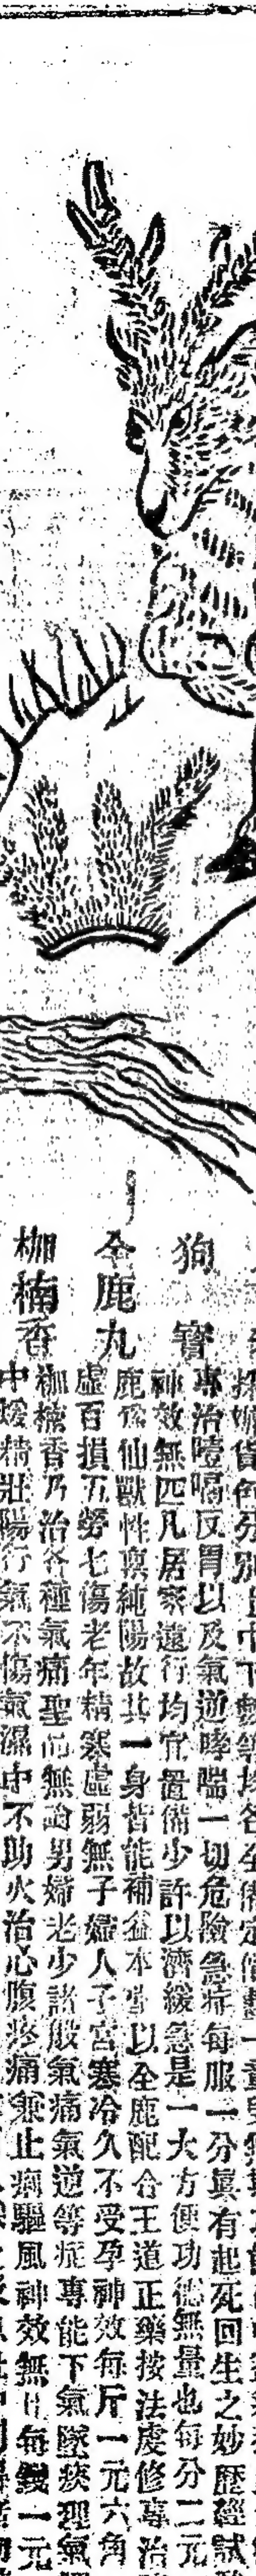 狗寶
專治噎嗝反胃以及氣逆哮喘一切危險急症每服一分眞有起死回生之妙歷經試
神效無匹凡居家遠行均宜置備少許以濟緩急是一大方便功德無量也每分二元
全鹿丸
鹿爲仙獸性稟純陽故其一身皆能補益本堂以全鹿配合王道正藥按法虔修專治
虛百損五勞七傷老年精寒虛弱無子婦人子宮寒冷久不受孕神效每斤一元六角
枷楠香
枷楠香乃治各種氣痛聖品無論男婦老少諸般氣痛氣逆等症專能下氣墜痰理氣
中煖精壯陽行氣不傷氣濕中不助火治心腹疼痛兼止痢驅風神效無比每錢一元